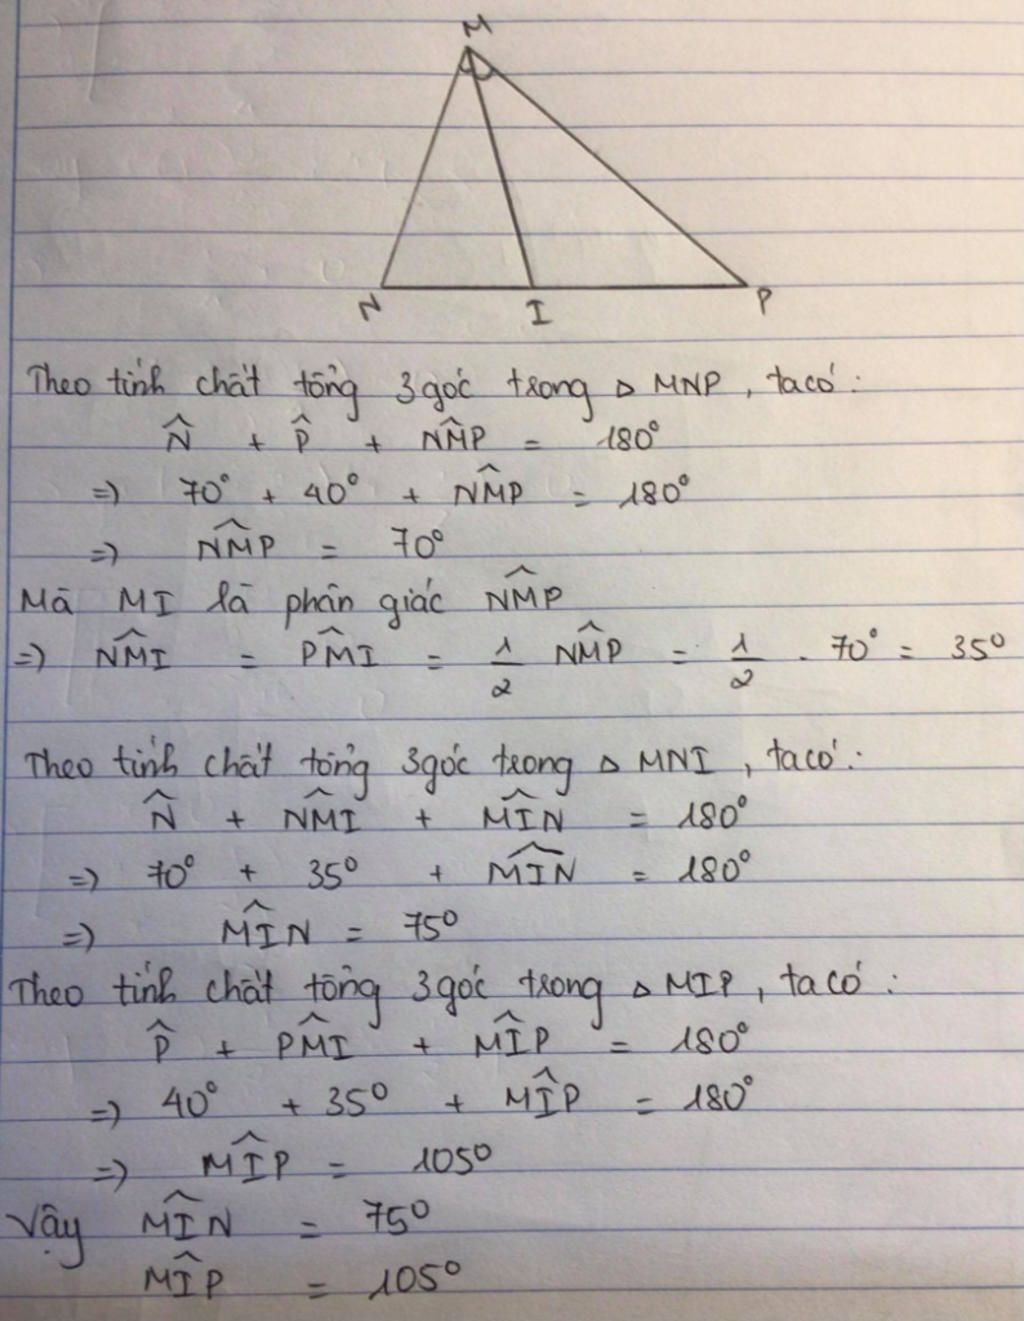 M
N I P
Theo tính chất tổng 3 góc trong △ MNP, ta có:
N̂ + P̂ + NM̂P = 180°
=> 70° + 40° + NM̂P = 180°
=> NM̂P = 70°
Mà MI là phân giác NM̂P
=> NM̂I = PM̂I = 1/2 NM̂P = 1/2 . 70° = 35°
Theo tính chất tổng 3 góc trong △ MNI, ta có:
N̂ + NM̂I + MÎN = 180°
=> 70° + 35° + MÎN = 180°
=> MÎN = 75°
Theo tính chất tổng 3 góc trong △ MIP, ta có:
P̂ + PM̂I + MÎP = 180°
=> 40° + 35° + MÎP = 180°
=> MÎP = 105°
Vậy MÎN = 75°
MÎP = 105°